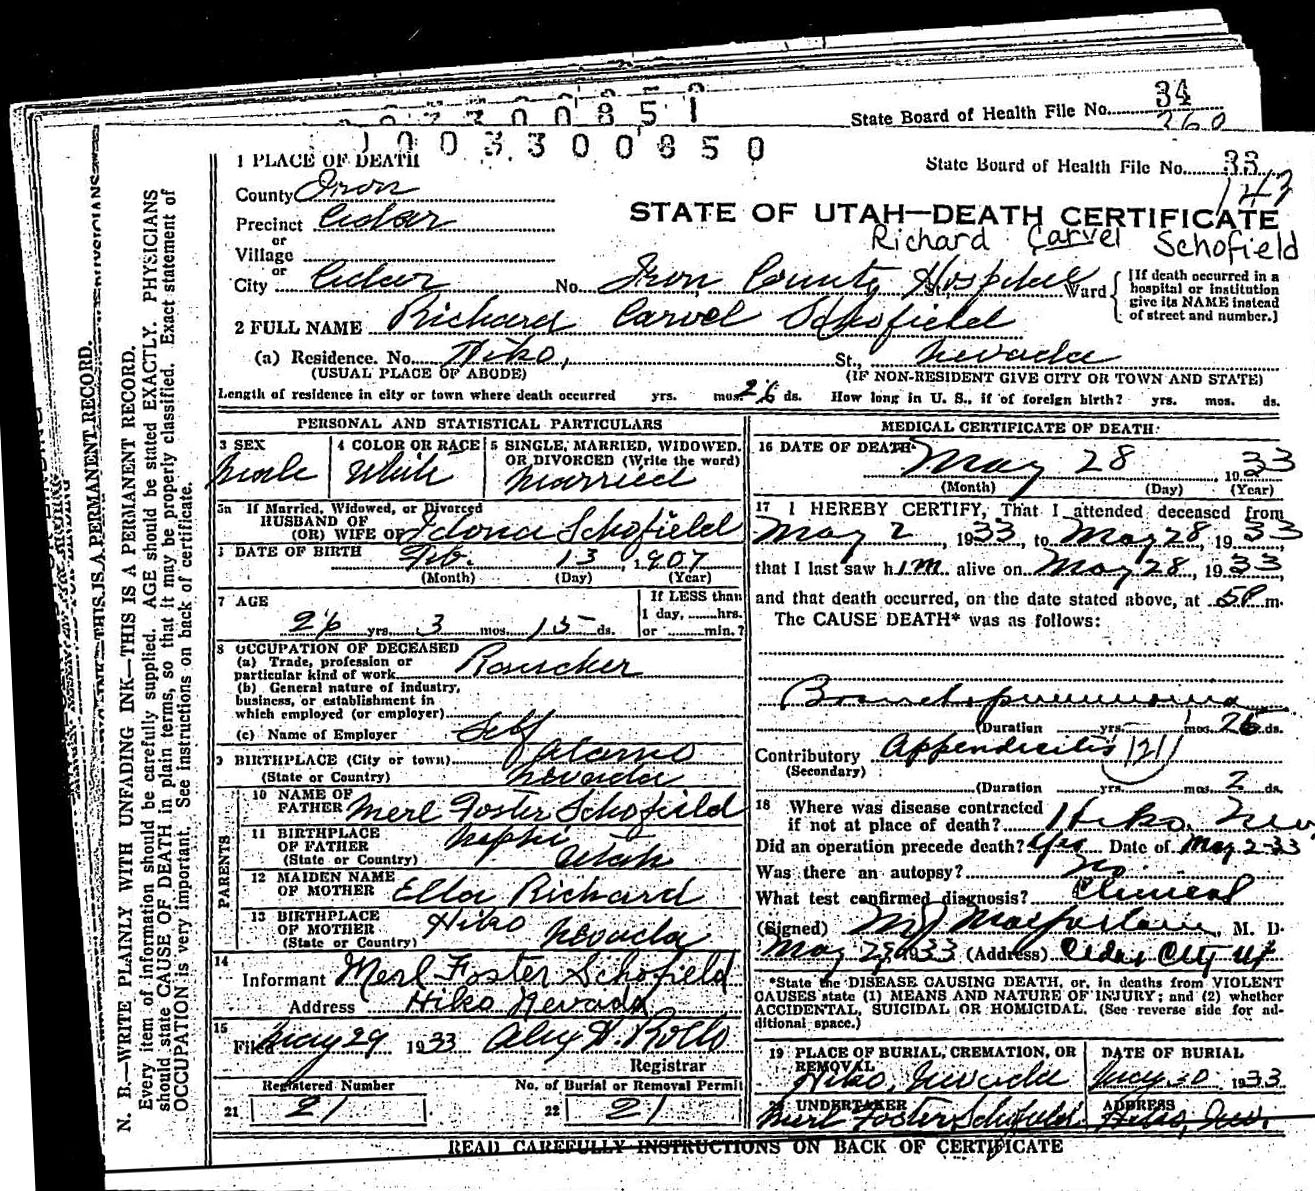 State Board of Health File No. 34
260
1003300850
State Board of Health File No. 33
147
1 PLACE OF DEATH
County Iron
STATE OF UTAH—DEATH CERTIFICATE
Precinct Cedar
Richard Carvel Schofield
or
Village
or
City Cedar No. Iron County Hospital St., Ward
[If death occurred in a
hospital or institution
give its NAME instead
of street and number.]
2 FULL NAME Richard Carvel Schofield
(a) Residence. No. Hiko, St., Nevada
(USUAL PLACE OF ABODE) (IF NON-RESIDENT GIVE CITY OR TOWN AND STATE)
Length of residence in city or town where death occurred yrs. mos. 26 ds. How long in U. S., if of foreign birth? yrs. mos. ds.
PERSONAL AND STATISTICAL PARTICULARS
3 SEX 4 COLOR OR RACE 5 SINGLE, MARRIED, WIDOWED,
OR DIVORCED (Write the word)
Male White Married
5a If Married, Widowed, or Divorced
HUSBAND OF
(OR) WIFE OF Idona Schofield
DATE OF BIRTH Feb. 13, 1907
(Month) (Day) (Year)
7 AGE If LESS than
1 day, hrs.
26 yrs. 3 mos. 15 ds. or min.?
8 OCCUPATION OF DECEASED
(a) Trade, profession or
particular kind of work Rancher
(b) General nature of industry,
business, or establishment in
which employed (or employer)
(c) Name of Employer Self
9 BIRTHPLACE (City or town) Alamo
(State or Country) Nevada
PARENTS
10 NAME OF
FATHER Merl Foster Schofield
11 BIRTHPLACE
OF FATHER Nephi
(State or Country) Utah
12 MAIDEN NAME
OF MOTHER Ella Richard
13 BIRTHPLACE
OF MOTHER Hiko
(State or Country) Nevada
14
Informant Merl Foster Schofield
Address Hiko Nevada
15
Filed May 29 1933 Alex H. Rollo
Registrar
Registered Number No. of Burial or Removal Permit
21 21 22 21
MEDICAL CERTIFICATE OF DEATH
16 DATE OF DEATH May 28 1933
(Month) (Day) (Year)
17 I HEREBY CERTIFY, That I attended deceased from
May 2, 1933, to May 28, 1933
that I last saw him alive on May 28, 1933,
and that death occurred, on the date stated above, at 5P m.
The CAUSE DEATH* was as follows:
Bronchopneumonia
(Duration yrs. mos. 26 ds.
Contributory Appendicitis 121
(Secondary)
(Duration yrs. mos. 2 ds.
18 Where was disease contracted
if not at place of death? Hiko, Nev
Did an operation precede death? Yes Date of May 2-33
Was there an autopsy? No
What test confirmed diagnosis? Clinical
(Signed) M J Macfarlane, M. D.
May 29, 1933 (Address) Cedar City Ut
*State the DISEASE CAUSING DEATH, or, in deaths from VIOLENT
CAUSES state (1) MEANS AND NATURE OF INJURY; and (2) whether
ACCIDENTAL, SUICIDAL OR HOMICIDAL. (See reverse side for ad-
ditional space.)
19 PLACE OF BURIAL, CREMATION, OR
REMOVAL
Hiko, Nevada
DATE OF BURIAL
May 30 1933
20 UNDERTAKER
Merl Foster Schofield
ADDRESS
Hiko, Nev.
READ CAREFULLY INSTRUCTIONS ON BACK OF CERTIFICATE
N. B.—WRITE PLAINLY WITH UNFADING INK—THIS IS A PERMANENT RECORD.
Every item of information should be carefully supplied. AGE should be stated EXACTLY. PHYSICIANS
should state CAUSE OF DEATH in plain terms, so that it may be properly classified. Exact statement of
OCCUPATION is very important. See instructions on back of certificate.